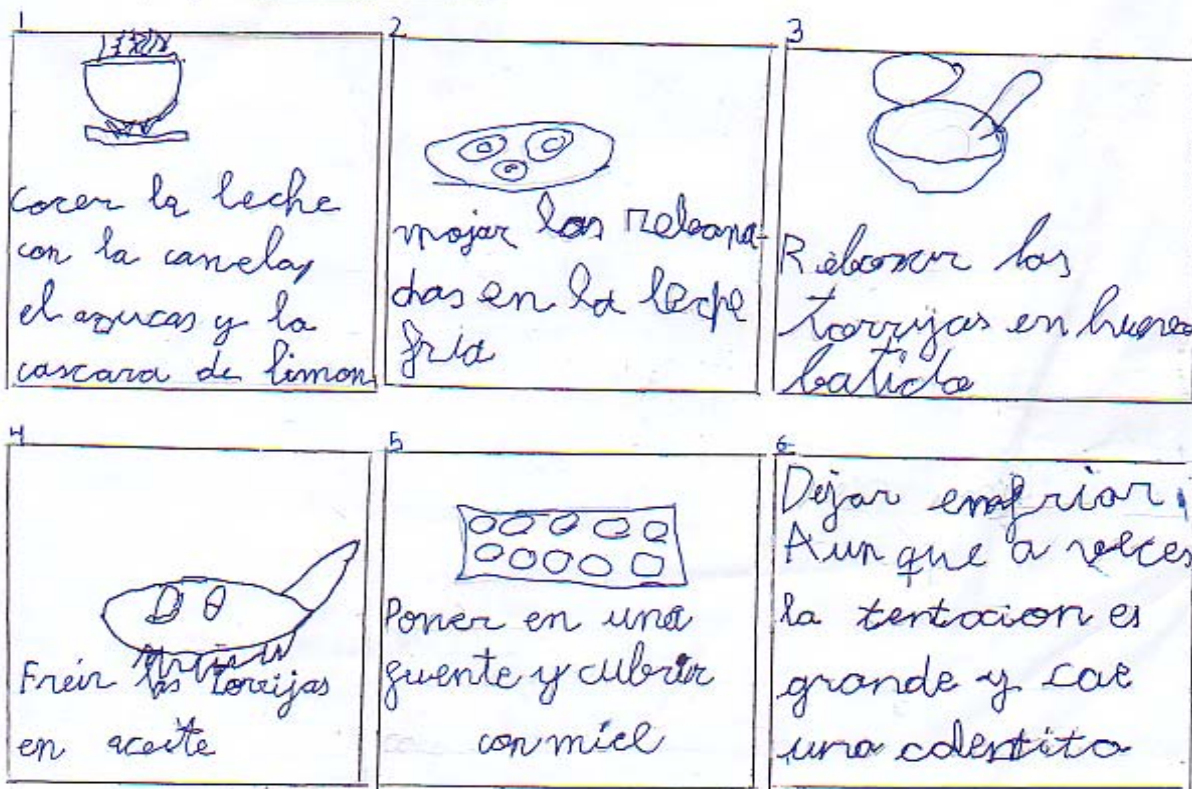 1
cocer la leche
con la canela,
el azucar y la
cascara de limon
2
mojar las rebana-
das en la leche
fria
3
Rebozar las
torrijas en huevo
batido
4
Freir las torrijas
en aceite
5
Poner en una
fuente y cubrir
con miel
6
Dejar enfriar.
Aun que a veces
la tentacion es
grande y cae
una calentita